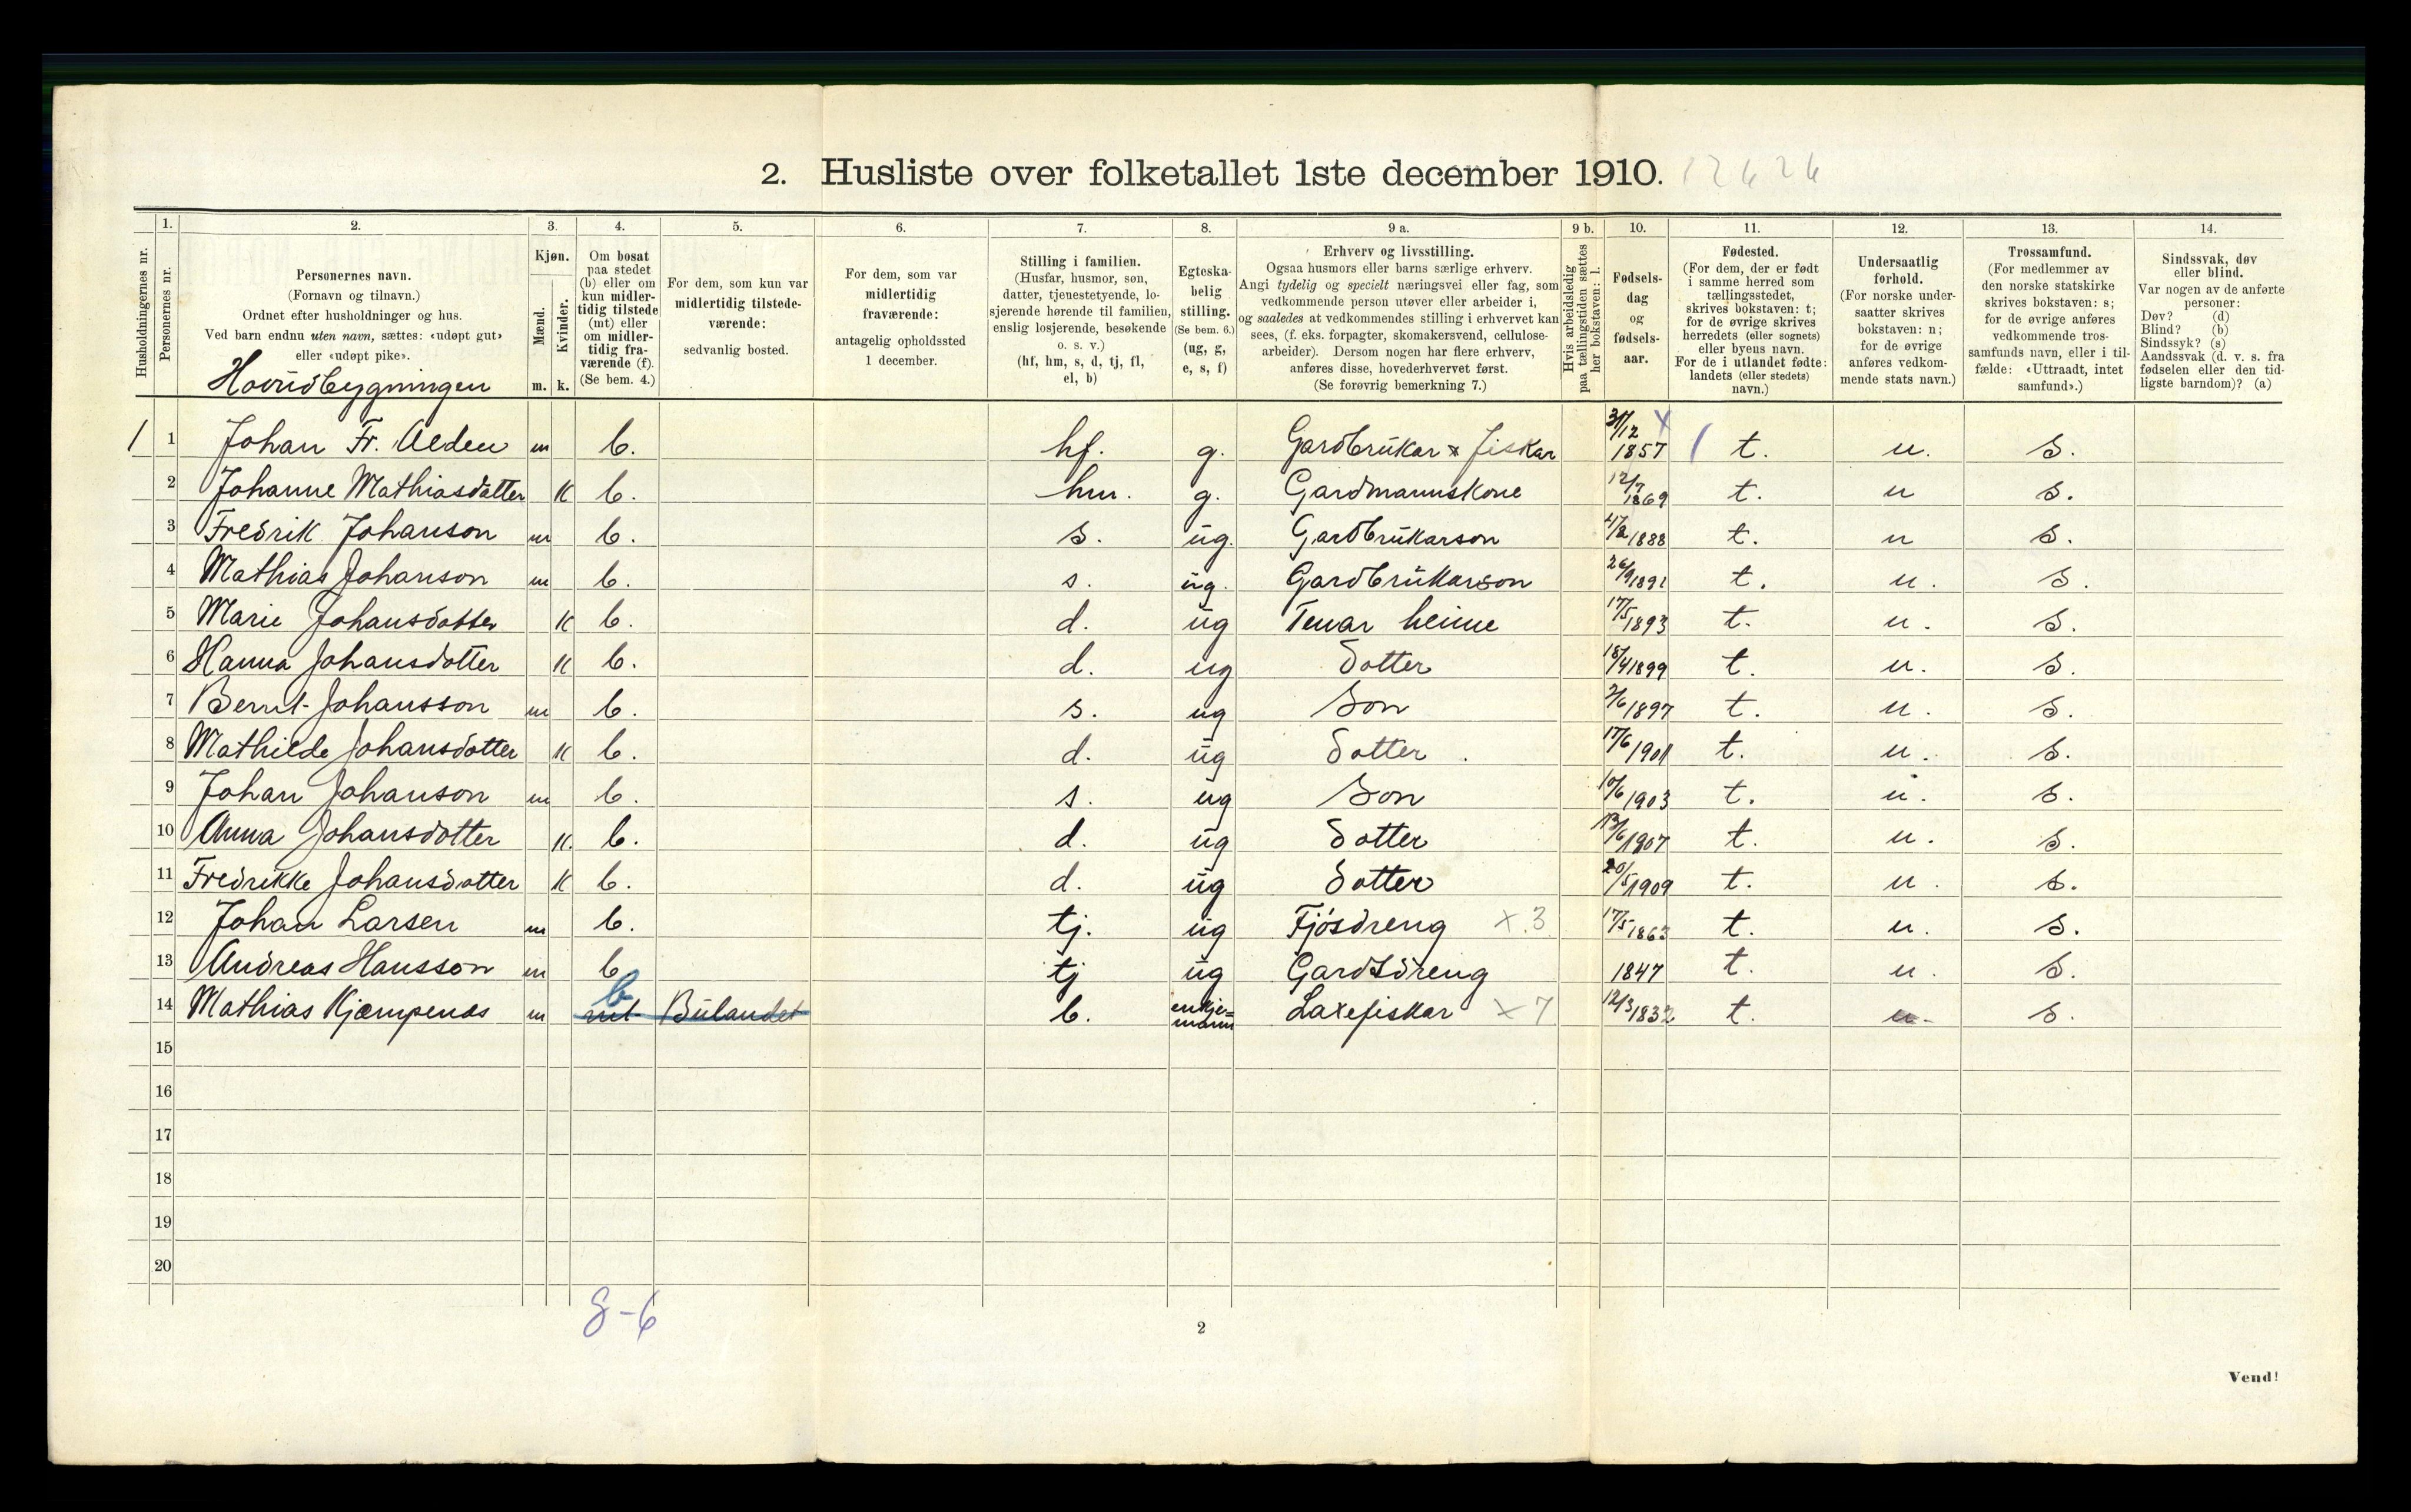 2. Husliste over folketallet 1ste december 1910. 12626
Husholdningernes nr.
1. Personernes nr.
2. Personernes navn.
(Fornavn og tilnavn.)
Ordnet efter husholdninger og hus.
Ved barn endnu uten navn, sættes: «udøpt gut»
eller «udøpt pike».
Hovudbygningen
3. Kjøn.
Mænd. m.
Kvinder. k.
4. Om bosat
paa stedet
(b) eller om
kun midler-
tidig tilstede
(mt) eller
om midler-
tidig fra-
værende (f).
(Se bem. 4.)
5. For dem, som kun var
midlertidig tilstede-
værende:
sedvanlig bosted.
6. For dem, som var
midlertidig
fraværende:
antagelig opholdssted
1 december.
7. Stilling i familien.
(Husfar, husmor, søn,
datter, tjenestetyende, lo-
sjerende hørende til familien,
enslig losjerende, besøkende
o. s. v.)
(hf, hm, s, d, tj, fl,
el, b)
8. Egteska-
belig
stilling.
(Se bem. 6.)
(ug, g,
e, s, f)
9 a. Erhverv og livsstilling.
Ogsaa husmors eller barns særlige erhverv.
Angi tydelig og specielt næringsvei eller fag, som
vedkommende person utøver eller arbeider i,
og saaledes at vedkommendes stilling i erhvervet kan
sees, (f. eks. forpagter, skomakersvend, cellulose-
arbeider). Dersom nogen har flere erhverv,
anføres disse, hovederhvervet først.
(Se forøvrig bemerkning 7.)
9 b. Hvis arbeidsledig
paa tællingstiden sættes
her bokstaven: l.
10. Fødsels-
dag
og
fødsels-
aar.
11. Fødested.
(For dem, der er født
i samme herred som
tællingsstedet,
skrives bokstaven: t;
for de øvrige skrives
herredets (eller sognets)
eller byens navn.
For de i utlandet fødte:
landets (eller stedets)
navn.)
12. Undersaatlig
forhold.
(For norske under-
saatter skrives
bokstaven: n;
for de øvrige
anføres vedkom-
mende stats navn.)
13. Trossamfund.
(For medlemmer av
den norske statskirke
skrives bokstaven: s;
for de øvrige anføres
vedkommende tros-
samfunds navn, eller i til-
fælde: «Uttraadt, intet
samfund».)
14. Sindssvak, døv
eller blind.
Var nogen av de anførte
personer:
Døv? (d)
Blind? (b)
Sindssyk? (s)
Aandssvak (d. v. s. fra
fødselen eller den tid-
ligste barndom)? (a)
1 1 Johan Fr. Alden m b. hf. g. Gardbrukar x fiskar 31/12 1857 t. n. s.
2 Johanne Mathiasdatter K b. hm. g. Gardmannskone 12/7 1869 t. n s.
3 Fredrik Johanson m b. s. ug. Gardbrukarson 4/2 1888 t. n s.
4 Mathias Johanson m b. s. ug. Gardbrukarson 26/9 1891 t. n. s.
5 Marie Johansdatter K b. d. ug Tenar heime 17/5 1893 t. n. s.
6 Hanna Johansdotter K b. d. ug Dotter 18/4 1899 t. n. s.
7 Bernt Johansson m b. s. ug Son 2/6 1897 t. n. s.
8 Mathilde Johansdotter K b. d. ug Dotter 17/6 1901 t. n. s.
9 Johan Johanson m b. s. ug Son 10/6 1903 t. n. s.
10 Anna Johansdotter K. b. d. ug Dotter 13/6 1907 t. n. s.
11 Fredrikke Johansdatter K b. d. ug Dotter 20/5 1909 t. n. s.
12 Johan Larsen m b. tj. ug Fjósdreng x 3 17/5 1863 t. n. s.
13 Andreas Hansson m b tj ug Gardsdreng 1847 t. n. s.
14 Mathias Kjempenes m mt b Bulandet b. enkje=mann Laxefiskar x 7 12/3 1832 t. n. s.
15
16
17
18
19
20
8-6
2
Vend!